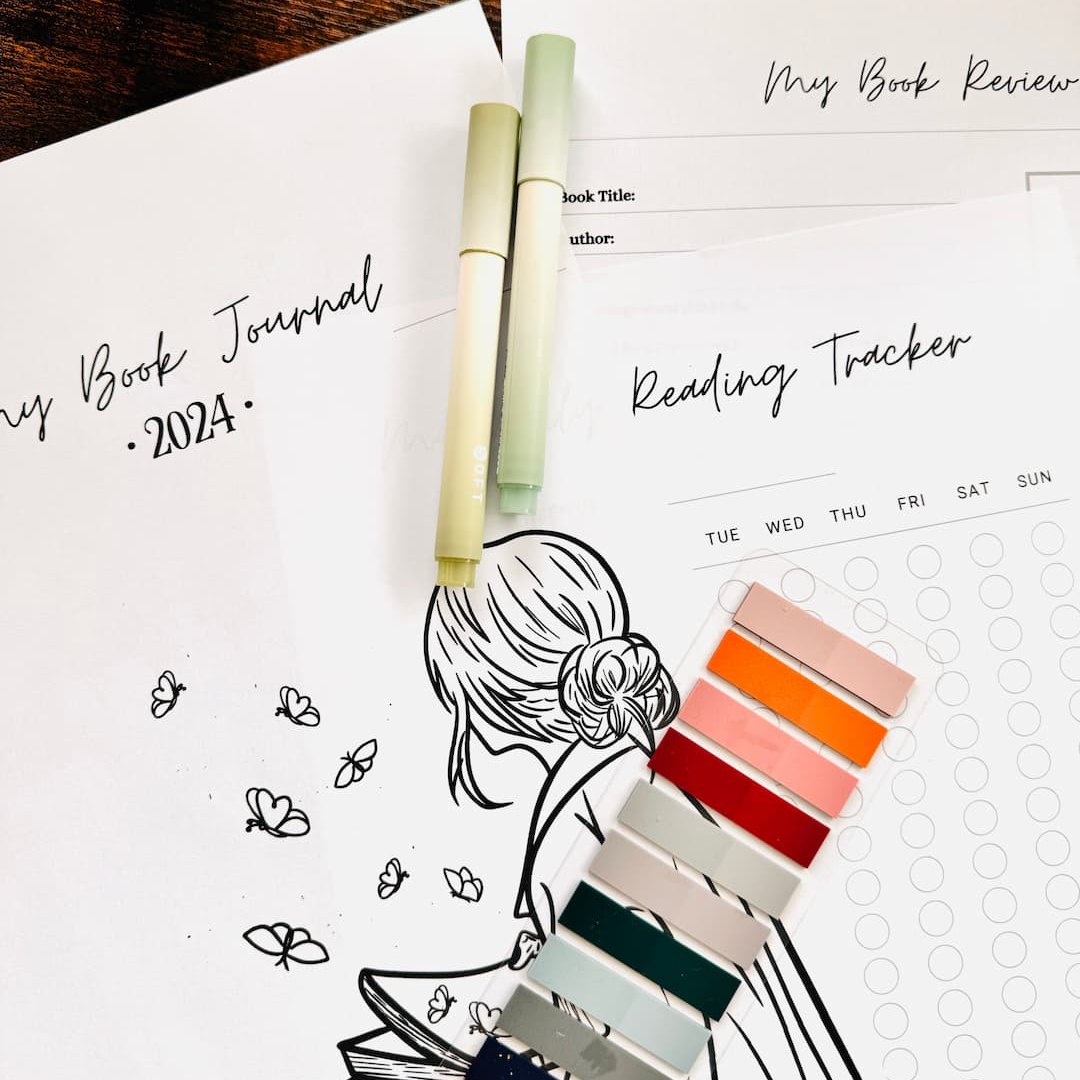 My Book Journal
• 2024 •
My Book Review
Book Title:
uthor:
Reading Tracker
TUE WED THU FRI SAT SUN
SOFT